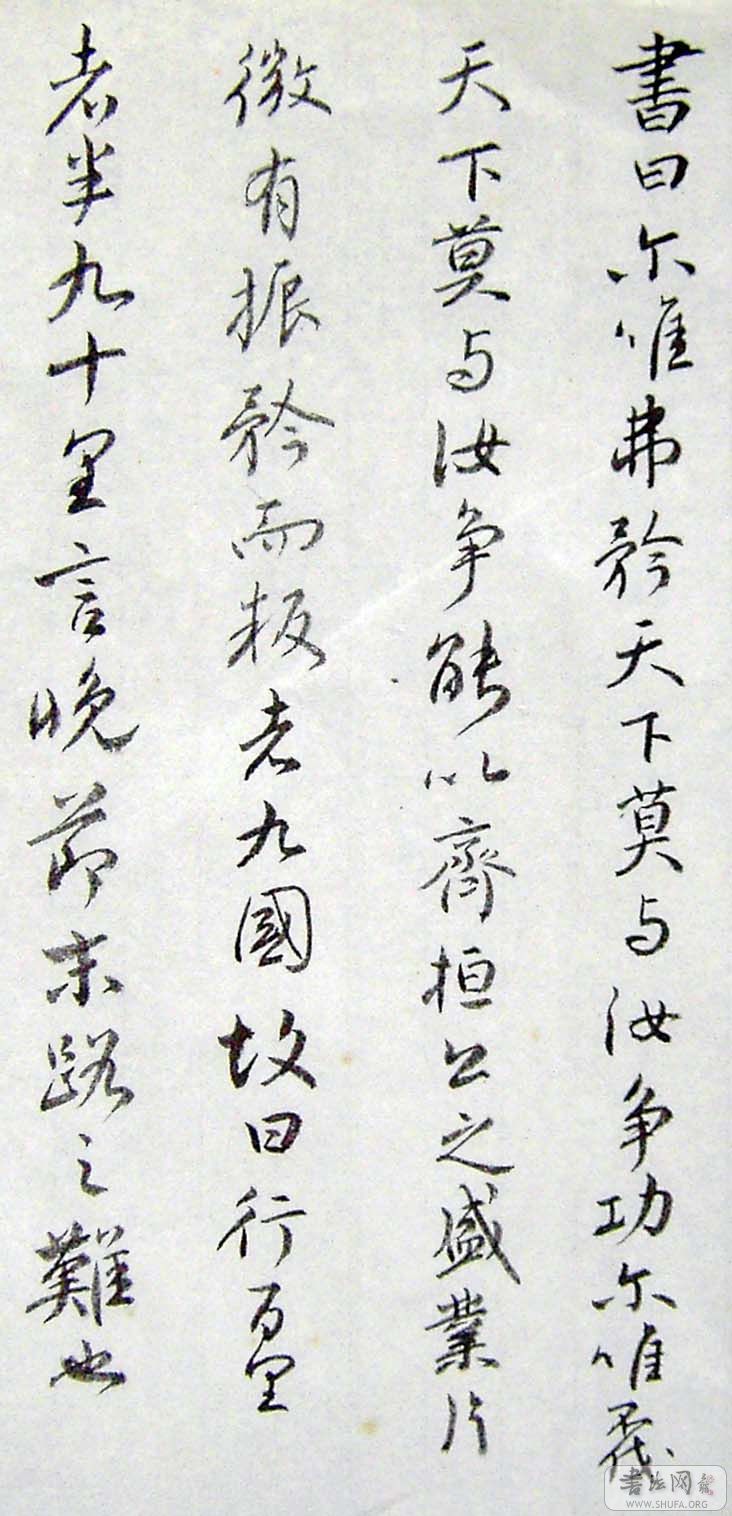 書曰尓唯弗矜天下莫与汝争功尓唯不伐
天下莫与汝争能以齊桓公之盛業片
微有振矜而叛者九國故曰行百里
者半九十里言晚節末路之難也
書法网
WWW.SHUFA.ORG